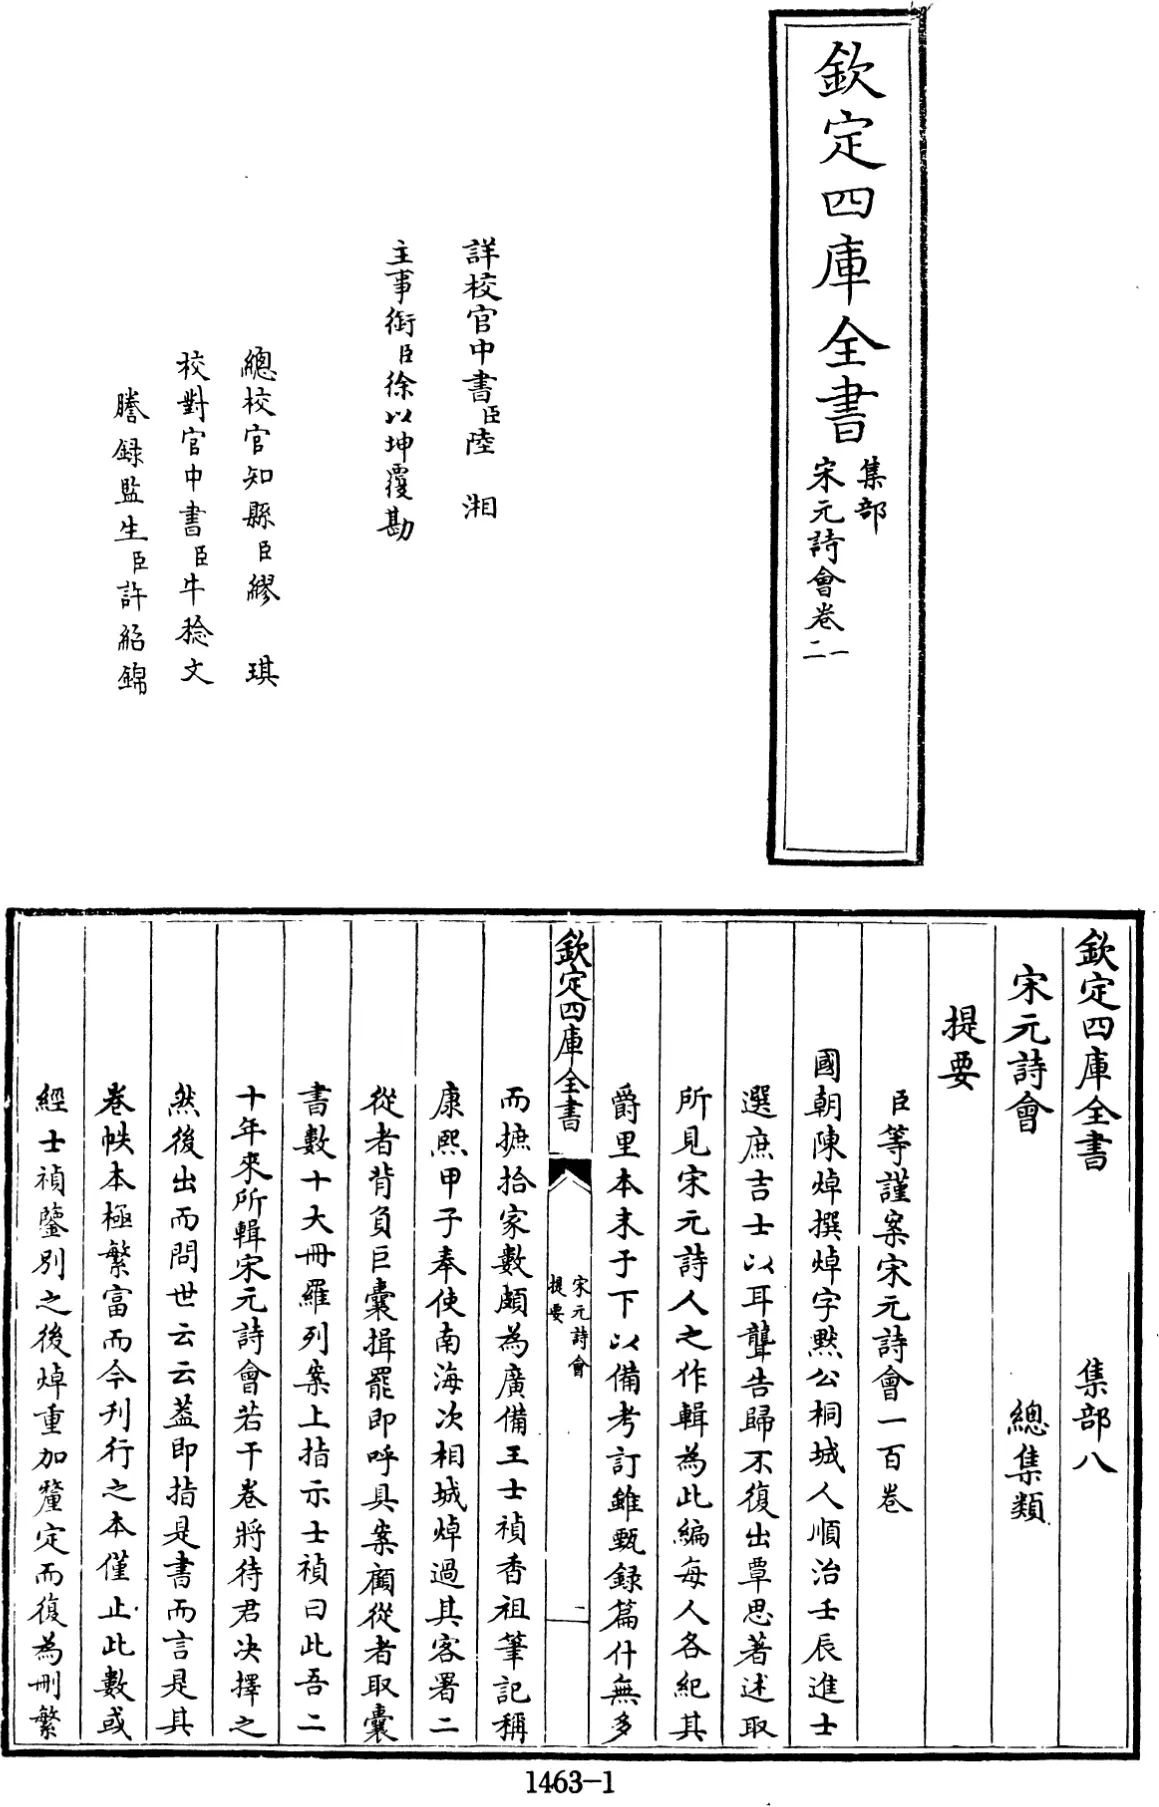 欽定四庫全書
集部
宋元詩會卷一
二
詳校官中書臣陸湘
主事銜臣徐以坤覆勘
總校官知縣臣繆琪
校對官中書臣牛稔文
謄錄監生臣許紹錦
欽定四庫全書 集部八
宋元詩會 總集類
提要
臣等謹案宋元詩會一百卷
國朝陳焯撰焯字默公桐城人順治壬辰進士
選庶吉士以耳聾告歸不復出覃思著述取
所見宋元詩人之作輯為此編每人各紀其
爵里本末于下以備考訂雖甄録篇什無多
欽定四庫全書
宋元詩會
提要
一
而摭拾家數頗為廣備王士禎香祖筆記稱
康熙甲子奉使南海次相城焯過其客署二
從者背負巨囊揖罷即呼具案顧從者取囊
書數十大冊羅列案上指示士禎曰此吾二
十年來所輯宋元詩會若干卷將待君决擇之
然後出而問世云云葢即指是書而言是其
卷帙本極繁富而今刋行之本僅止此數或
經士禎鑒別之後焯重加釐定而復為刪繁
1463-1